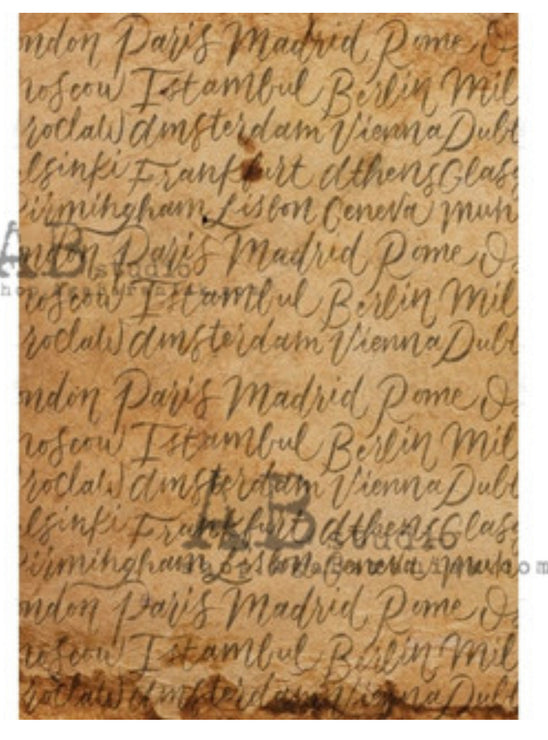 ndon Paris Madrid Rome O
roscow Istambul Berlin Mil
roclaw Amsterdam Vienna Dubl
lsinki Frankfurt Athens Glasg
irmingham Lisbon Geneva Mun
ndon Paris Madrid Rome O
AB studio
roscow Istambul Berlin Mil
roclaw Amsterdam Vienna Dubl
ndon Paris Madrid Rome O
roscow Istambul Berlin Mil
roclaw Amsterdam Vienna Dubl
lsinki Frankfurt Athens Glasg
AB studio
irmingham Lisbon Geneva Mun
ndon Paris Madrid Rome O
roscow Istambul Berlin Mil
roclaw Amsterdam Vienna Dubl